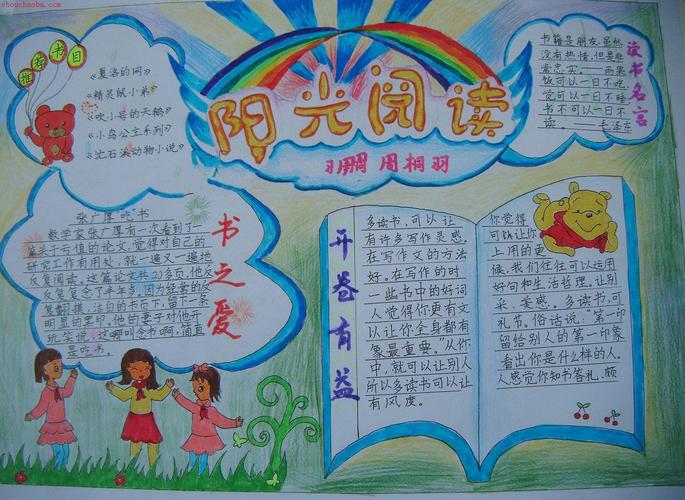 shouchaoba.com
推荐书目
《夏洛的网》
《精灵鼠小弟》
《吹小号的天鹅》
《小乌公主系列》
《沈石溪动物小说》
阳光阅读
周桐羽
读书名言
书籍是朋友,虽然
没有热情,但是非
常忠实。——雨果
饭可以一日不吃,
觉可以一日不睡,
书不可以一日不
读。——毛泽东
张广厚吃书
数学家张广厚有一次看到了一
篇关于亏值的论文,觉得对自己的
研究工作有用处,就一遍又一遍地
反复阅读。这篇论文共20多页,他反
反复复念了半年多。因为经常的反
复翻摸,洁白的书页下,留下一条
明显的黑印。他的妻子对他开
玩笑说,这哪叫念书啊,简直
是吃书。
书之爱
开卷有益
多读书,可以让
有许多写作灵感,
在写作文的方法
好。在写作的时
一些书中的好词
人觉得你更有文
以让你全身都有
象最重要。”从你
中,就可以让别人
所以多读书可以让
有风度。
你觉得
可以让你
上用的更
候,我们往往可以运用
好句和生活哲理,让别
采、美感。多读书,可
礼节。俗话说:“第一印
留给别人的第一印象
看出你是什么样的人。
人感觉你知书答礼,颇